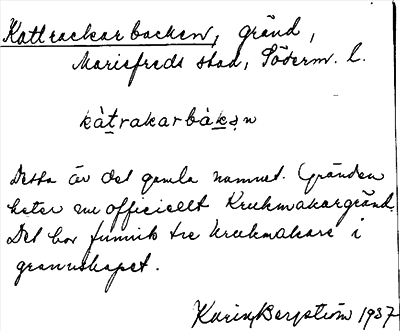 Kattrackarbacken, gränd,
Mariefreds stad, Söderm. l.
kàt̲rakarbàk̲ạn
Detta är det gamla namnet. Gränden
heter nu officiellt Krukmakargränd.
Det har funnits tre krukmakare i
grannskapet.
Karin Bergström 1937